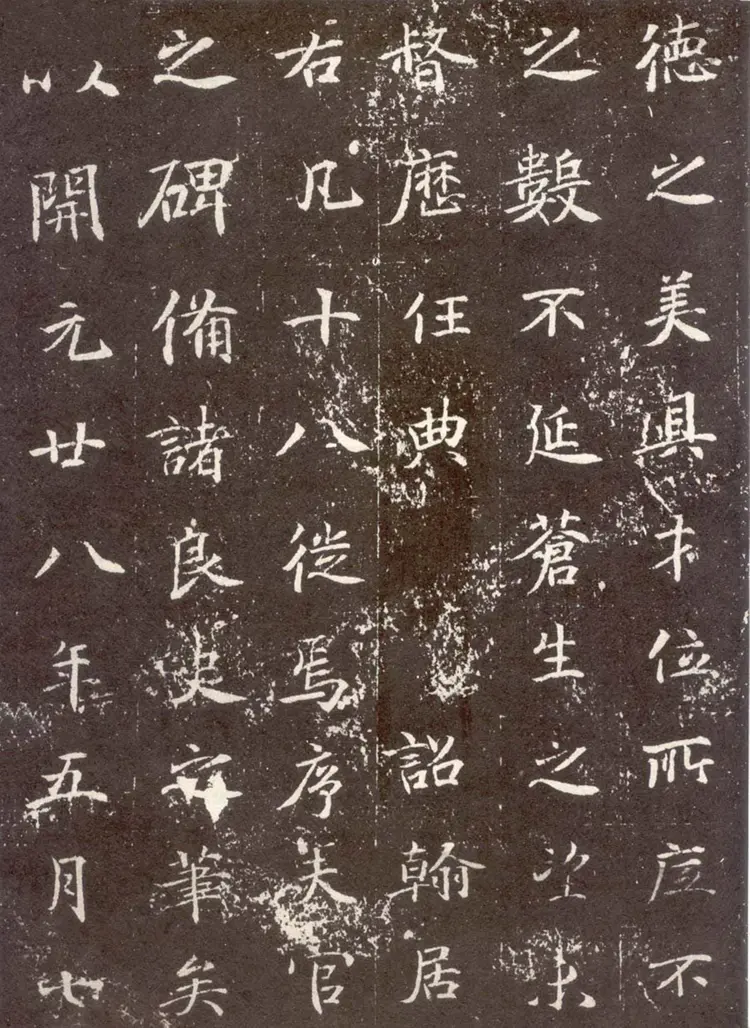 德之美與才位所不
之數不延蒼生之未
督歷任典詔翰居
右凡十八徙焉序夫官
之碑備諸良史筆矣
以開元廿八年五月七